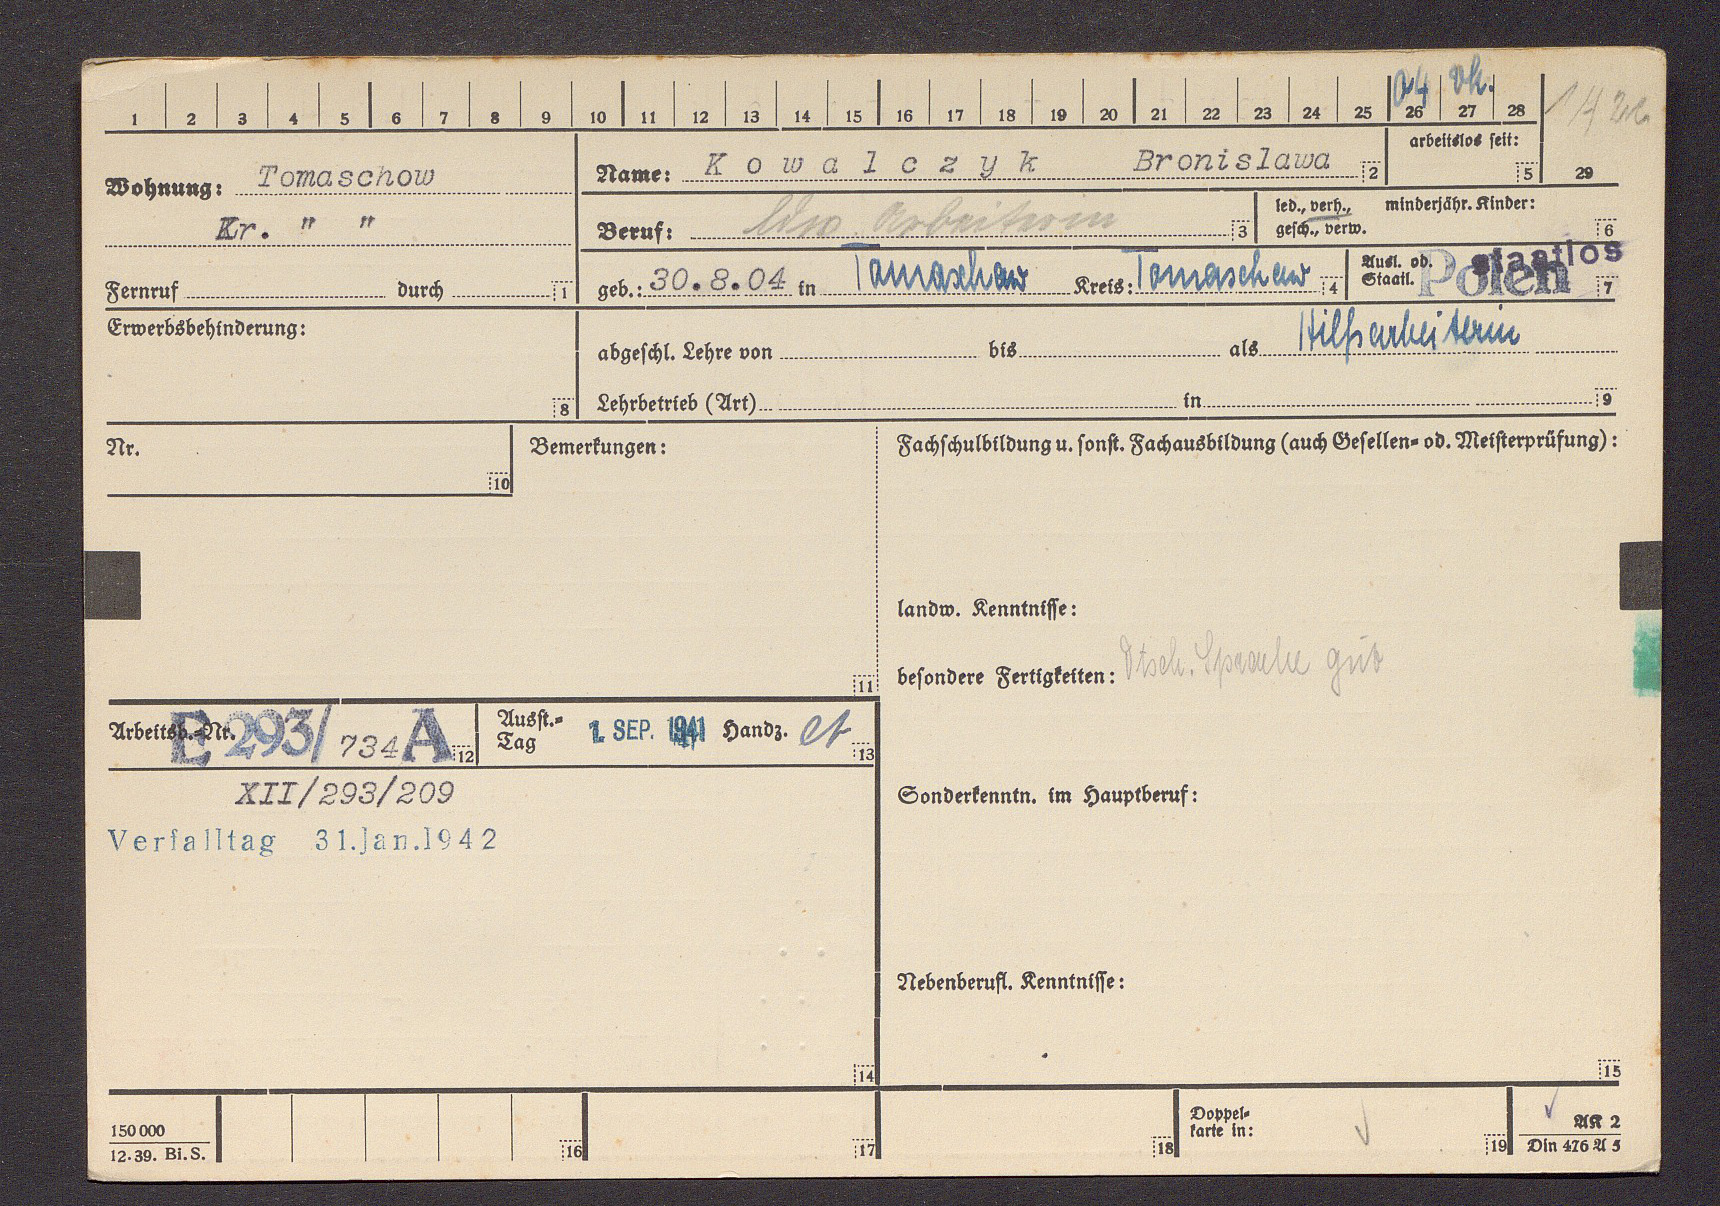 04 vh.
1 2 3 4 5 6 7 8 9 10 11 12 13 14 15 16 17 18 19 20 21 22 23 24 25 26 27 28
arbeitslos seit:
5 29
Wohnung: Tomaschow
Kr. " "
Name: Kowalczyk Bronislawa 2
Beruf: Arbeiterin 3
led., verh., minderjähr. Kinder:
gesch., verw. 6
Fernruf durch 1
geb.: 30.8.04 in Tomaschow Kreis: Tomaschow 4
Ausl. od.
Staatl. Polen staatlos 7
Erwerbsbehinderung:
8
abgeschl. Lehre von bis als Hilfsarbeiterin
Lehrbetrieb (Art) in 9
Nr. 10
Bemerkungen:
11
Fachschulbildung u. sonst. Fachausbildung (auch Gesellen= od. Meisterprüfung):
landw. Kenntnisse:
besondere Fertigkeiten: Dtsch. Sprache gut
Arbeitsb.-Nr. E 293/ 734 A 12
Ausst.=
Tag 1. SEP. 1941 Handz. 13
XII/293/209
Verfalltag 31.Jan.1942
14
Sonderkenntn. im Hauptberuf:
Nebenberufl. Kenntnisse:
15
150000
12.39. Bi.S.
16 17 18
Doppel=
karte in: 19
AK 2
Din 476 A 5